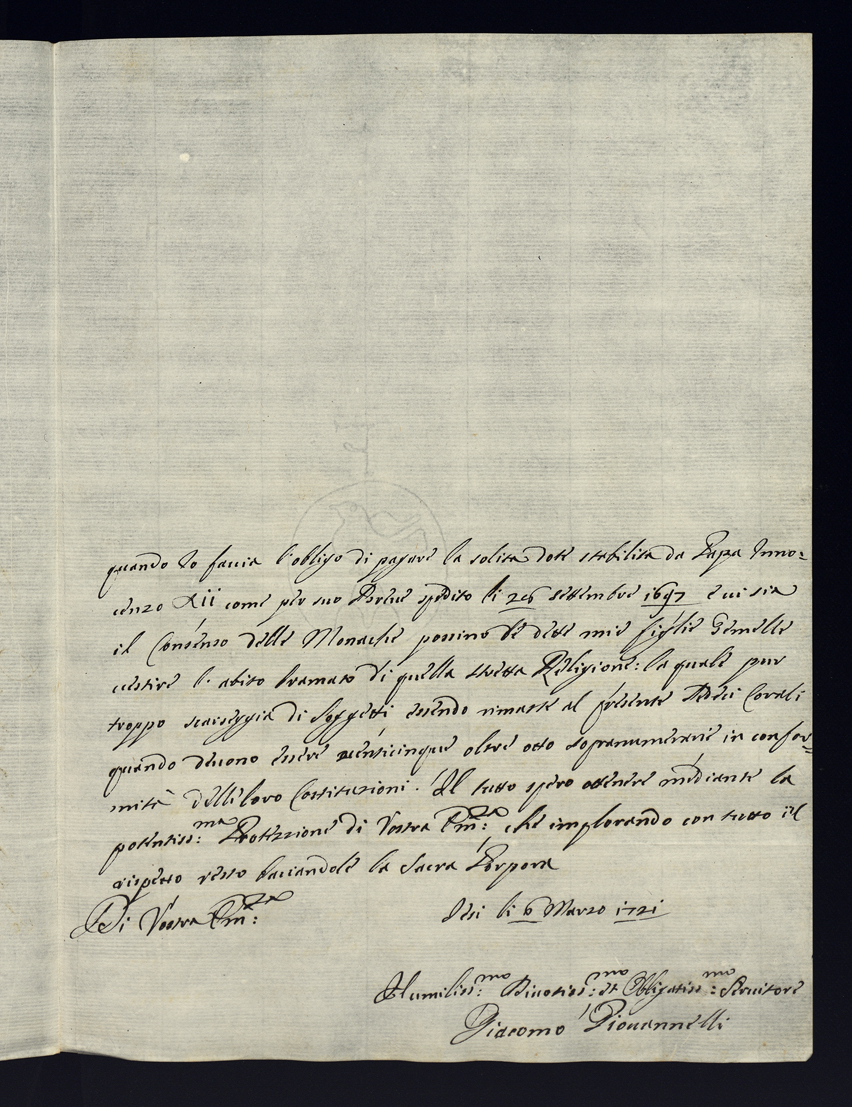 quando Io faccia l'obligo di pagare la solita dote stabilita da Papa Inno=
cenzo XII come per suo Breve spedito li 26 settembre 1697 e vi sia
il Consenso delle Monache possino le dette mie figlie Gemelle
vestire l'abito bramato di quella stretta Religione: la quale pur
troppo scarseggia di Soggetti essendo rimaste al presente Corali
quando devono essere venticinque oltre otto sopranumerarie in confor=
mità delle loro Costituzioni. Il tutto spero ottenere mediante la
potentiss:ma Protezzione di Vostra Em:za che implorando con tutto il
rispetto resto baciandole la Sacra Porpora
Di Vostra Em:za
Iesi li 6 Marzo 1721
Humiliss:mo Divotiss:mo et Obligatiss:mo Servitore
Giacomo Giovannelli